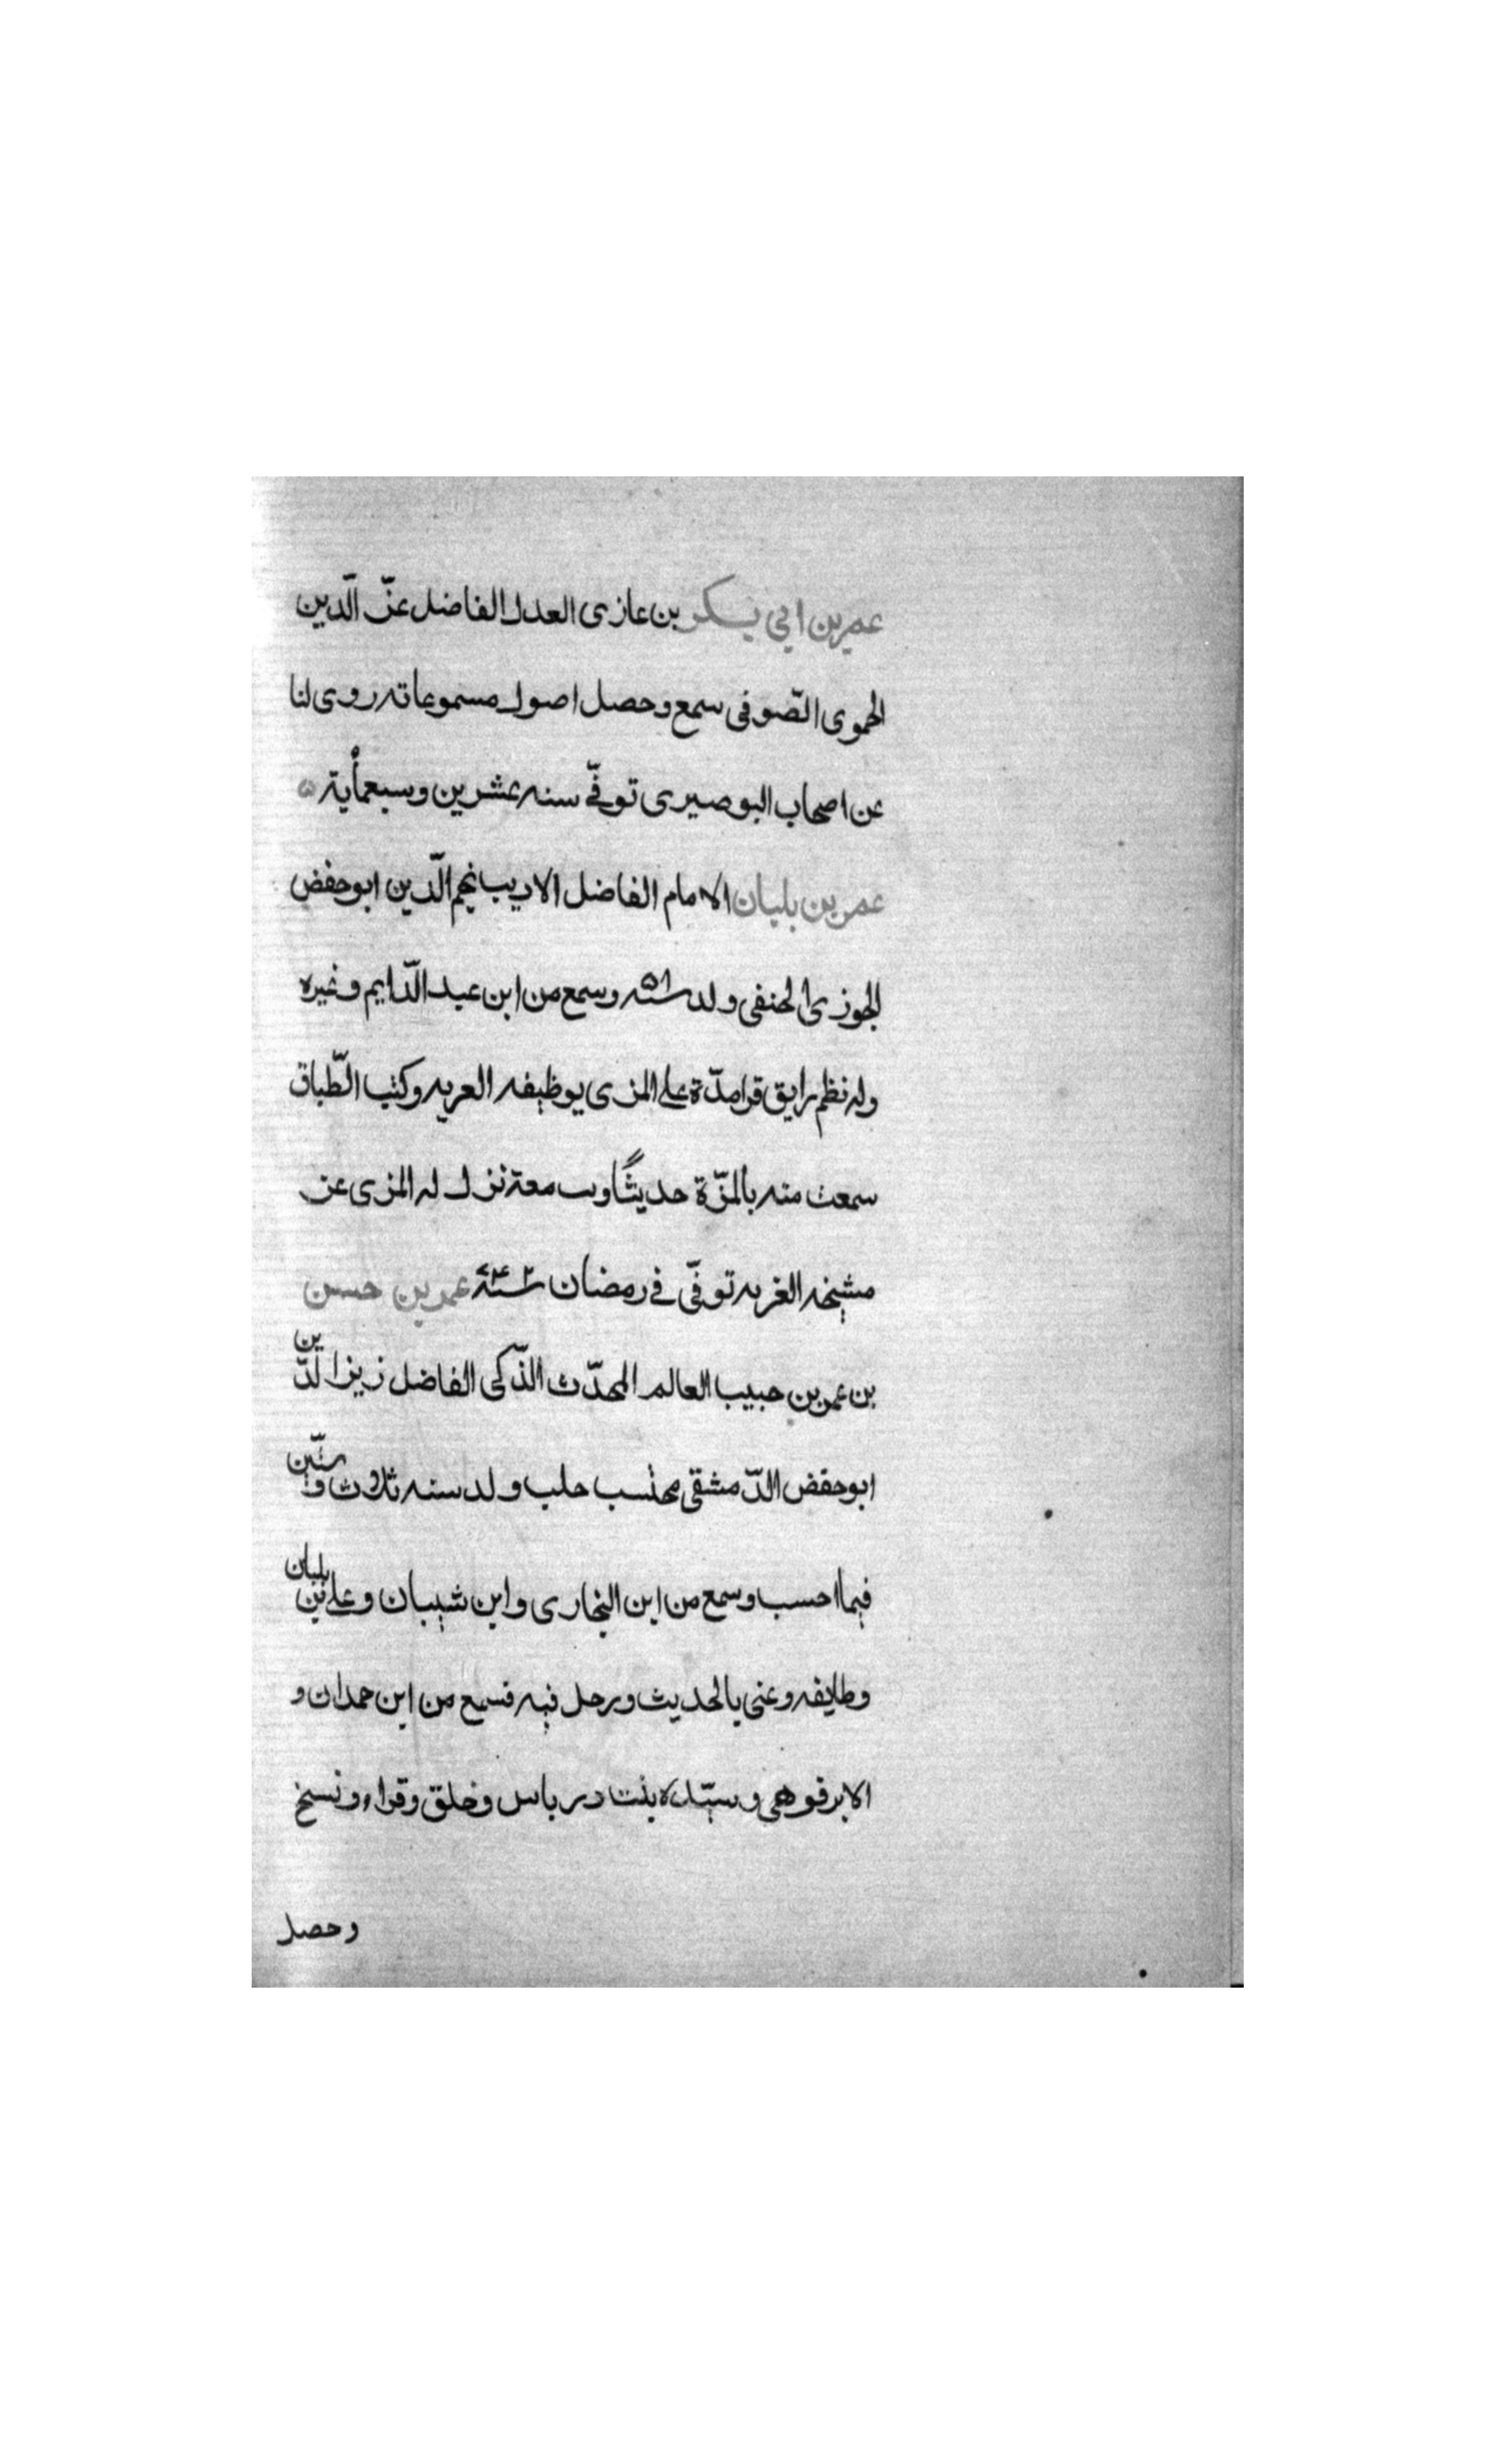 عمر بن ابي بكر بن عازى العدل الفاضل عزّ الّدين
الحموى الصّوفى سمع وحصل اصول مسموعاته روى لنا
عن اصحاب البوصيرى توفّى سنه عشرين وسبعمأية ه
عمر بن بلبان الامام الفاضل الاديب نجم الّدين ابو حفض
الجوزى الحنفى ولد سنه ٥٨ وسمع من ابن عبد الّدايم وغيره
وله نظم رايق قرا مدّة على المزى بوظيفه العربه وكتب الطّباق
سمعت منه بالمزّة حديثًا وب معة نزل له المزى عن
مشيخه الغربه توفّى فى رمضان سنة عمر بن حسن
بن عمر بن حبيب العالم المحدّث الذّكى الفاضل زين الدّين
ابو حفض الدّمشقى محتسب حلب ولد سنه ثلاث وستّين
فيما احسب وسمع من ابن البخارى وابن شيبان وعلى بن بلبان
وطايفه وعنى بالحديث ورحل فيه فسمع من ابن حمدان و
الابرقوهى وسيّده بنت درباس وخلق وقراء ونسخ
وحصل